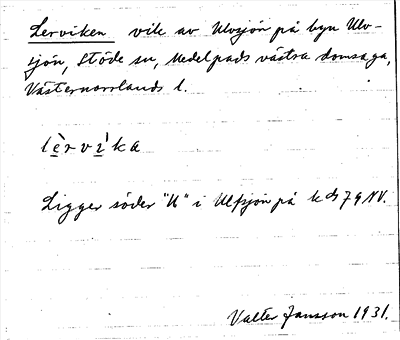 Lerviken vik av Ulvsjön på byn Ulv-
sjön, Stöde sn, Medelpads västra domsaga,
Västernorrlands l.
lèrvi̍ka
Ligger söder "U" i Ulfsjön på k 79 NV.
Valter Jansson 1931.